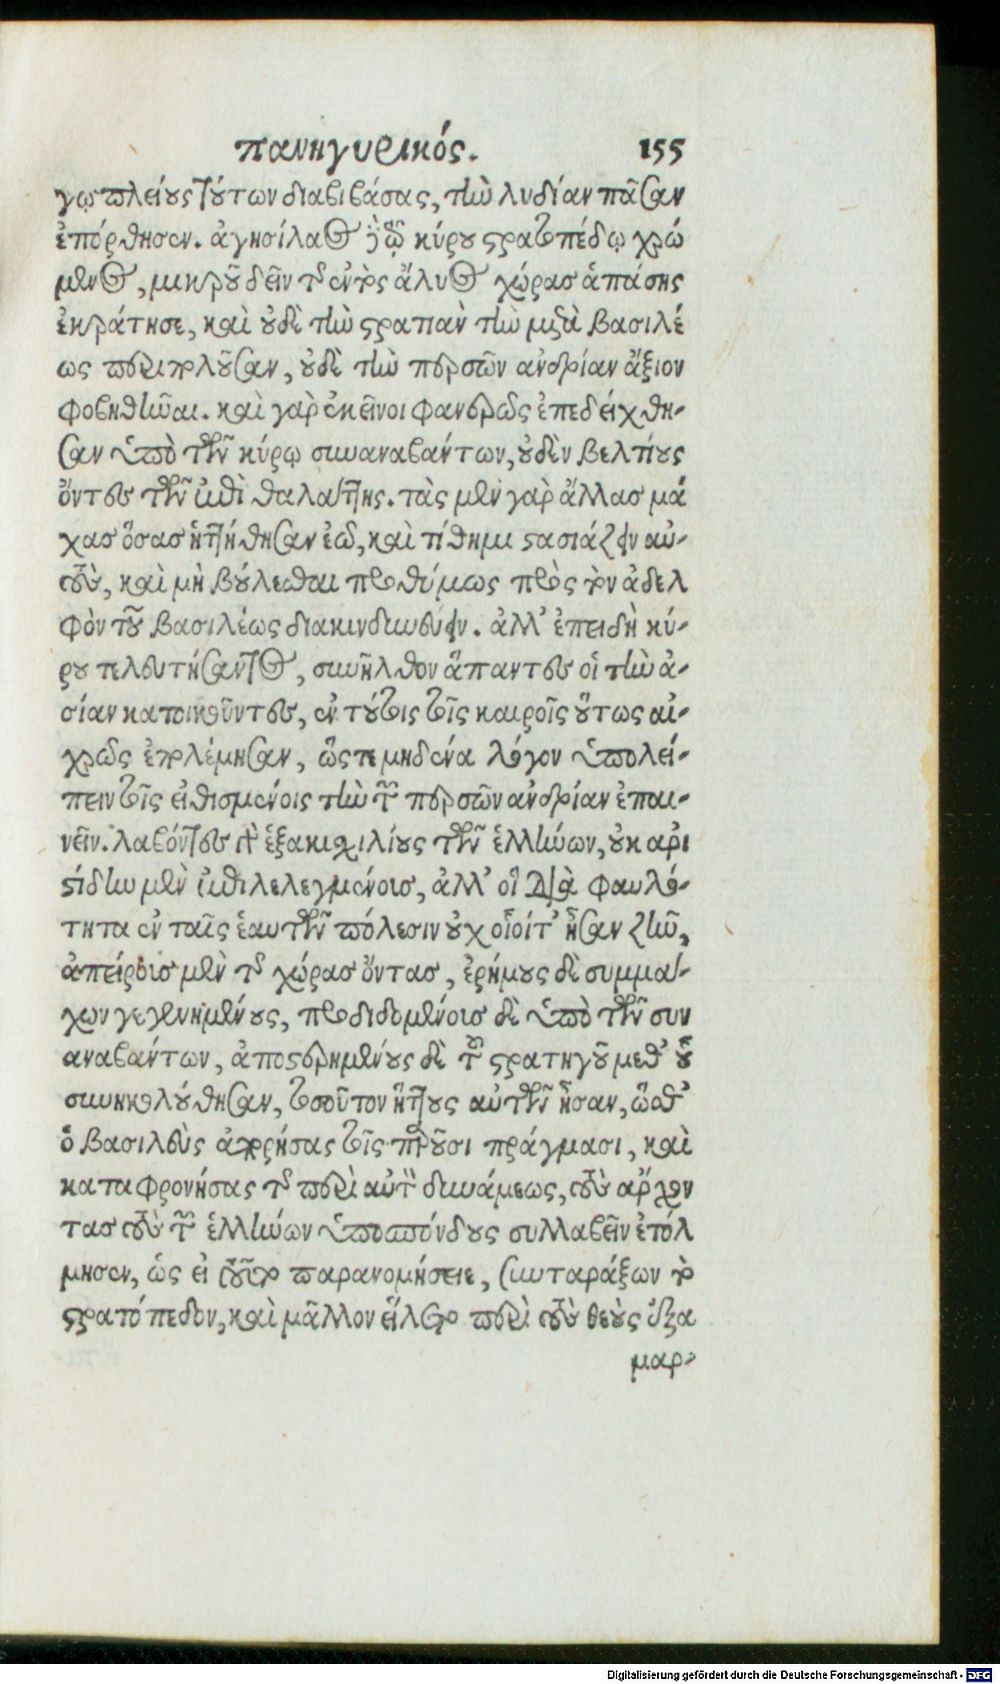 πανηγυρικός. 155
γῳ πλείους τούτων διαβιβάσας, τὴν λυδίαν πᾶσαν
ἐπόρθησεν. ἀγησίλαος δὲ τῷ κύρου στρατοπέδῳ χρώ
μενος, μικροῦ δεῖν τῆς ἐντὸς ἅλυος χώρας ἁπάσης
ἐκράτησε, καὶ οὐδὲ τὴν στρατιὰν τὴν μετὰ βασιλέ
ως περιπολοῦσαν, οὐδὲ τὴν περσῶν ἀνδρίαν ἄξιον
φοβηθῆναι. καὶ γὰρ ἐκεῖνοι φανερῶς ἐπεδείχθη-
σαν ὑπὸ τῶν κύρῳ συναναβάντων, οὐδὲν βελτίους
ὄντες τῶν ἐπὶ θαλάττης. τὰς μὲν γὰρ ἄλλας μά
χας ὅσας ἡττήθησαν ἐῶ, καὶ τίθημι στασιάζειν αὐ-
τοὺς, καὶ μὴ βούλεσθαι προθύμως πρὸς τὸν ἀδελ
φὸν τοῦ βασιλέως διακινδυνεύειν. ἀλλ' ἐπειδὴ κύ-
ρου τελευτήσαντος, συνῆλθον ἅπαντες οἱ τὴν ἀ-
σίαν κατοικοῦντες, ἐν τούτοις τοῖς καιροῖς οὕτως αἰ-
χρῶς ἐπολέμησαν, ὥστε μηδένα λόγον ὑπολεί-
πειν τοῖς εἰθισμένοις τὴν τῶν περσῶν ἀνδρίαν ἐπαι-
νεῖν. λαβόντες γὰρ ἑξακισχιλίους τῶν ἑλλήνων, οὐκ ἀρι
στίδην μὲν ἐπιλελεγμένοις, ἀλλ' οἳ διὰ φαυλό-
τητα ἐν ταῖς ἑαυτῶν πόλεσιν οὐχ οἷοί τ' ἦσαν ζῆν,
ἀπείροις μὲν τῆς χώρας ὄντας, ἐρήμους δὲ συμμά-
χων γεγενημένους, προδιδομένοις δὲ ὑπὸ τῶν συν
αναβάντων, ἀπεστερημένους δὲ τοῦ στρατηγοῦ μεθ' οὗ
συνηκολούθησαν, τοσοῦτον ἥττους αὐτῶν ἦσαν, ὥσθ'
ὁ βασιλεὺς ἀπορήσας τοῖς παροῦσι πράγμασι, καὶ
καταφρονήσας τῆς περὶ αὑτὸν δυνάμεως, τοὺς ἄρχον
τας τοὺς τῶν ἑλλήνων ὑποσπόνδους συλλαβεῖν ἐτόλ
μησεν, ὡς εἰ τοῦτο παρανομήσειε, συνταράξων τὸ
στρατόπεδον, καὶ μᾶλλον εἵλετο περὶ τοὺς θεοὺς ἐξα
μαρ-
Digitalisierung gefördert durch die Deutsche Forschungsgemeinschaft - DFG